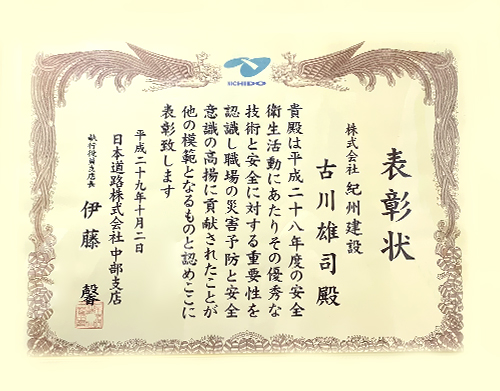 NICHIDO
表彰状
株式会社 紀州建設
古川雄司 殿
貴殿は平成二十八年度の安全
衛生活動にあたりその優秀な
技術と安全に対する重要性を
認識し職場の災害予防と安全
意識の高揚に貢献されたことが
他の模範となるものと認めここに
表彰致します
平成二十九年十月二日
日本道路株式会社 中部支店
執行役員支店長
伊藤 馨